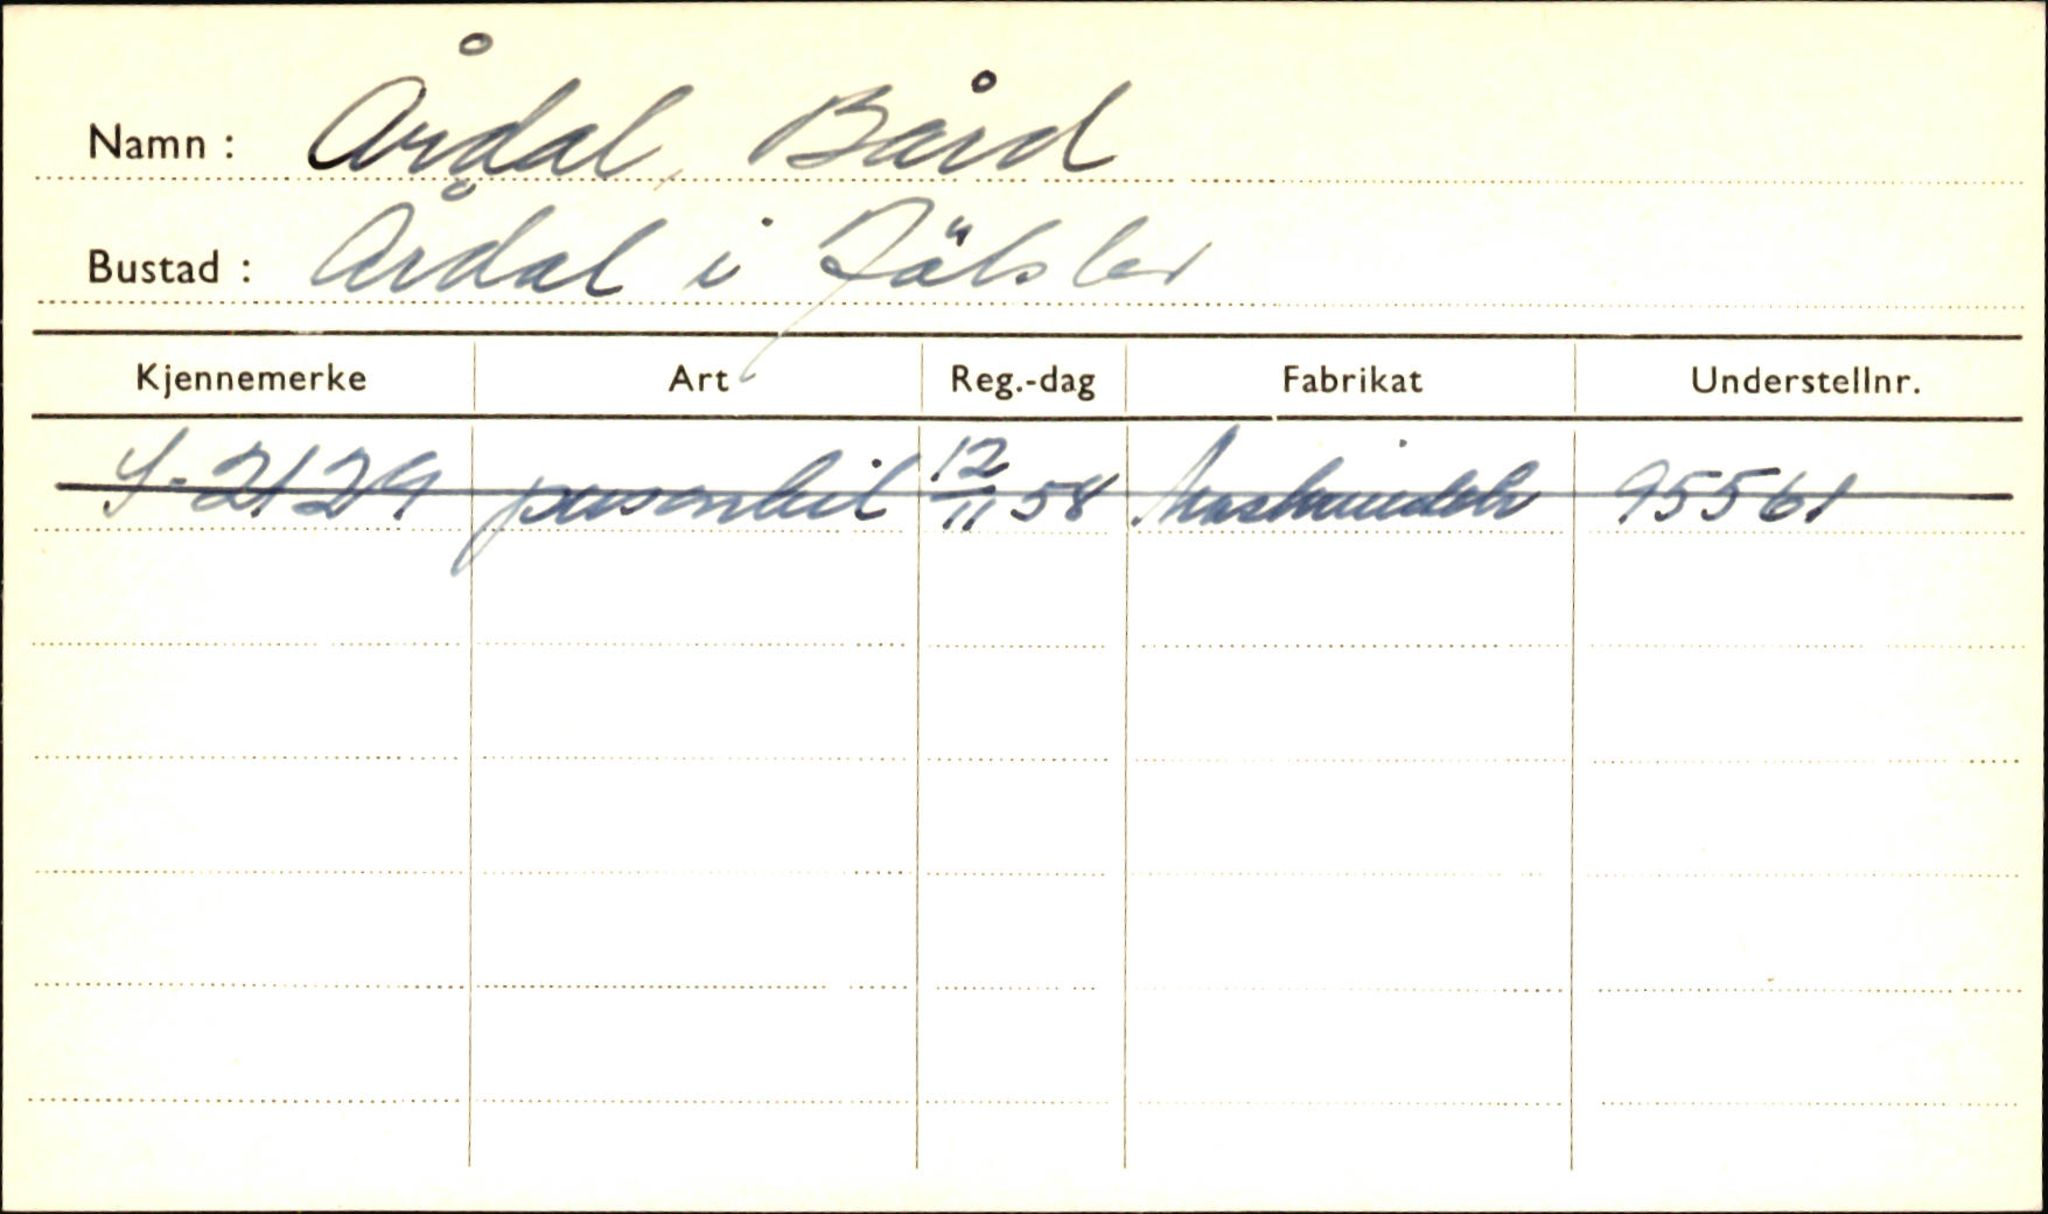 Namn : Årdal, Bård
Bustad : Årdal i Jölster
Kjennemerke Art Reg.-dag Fabrikat Understellnr.
S-2129 personbil 12/11 58 Moskvitch 95561